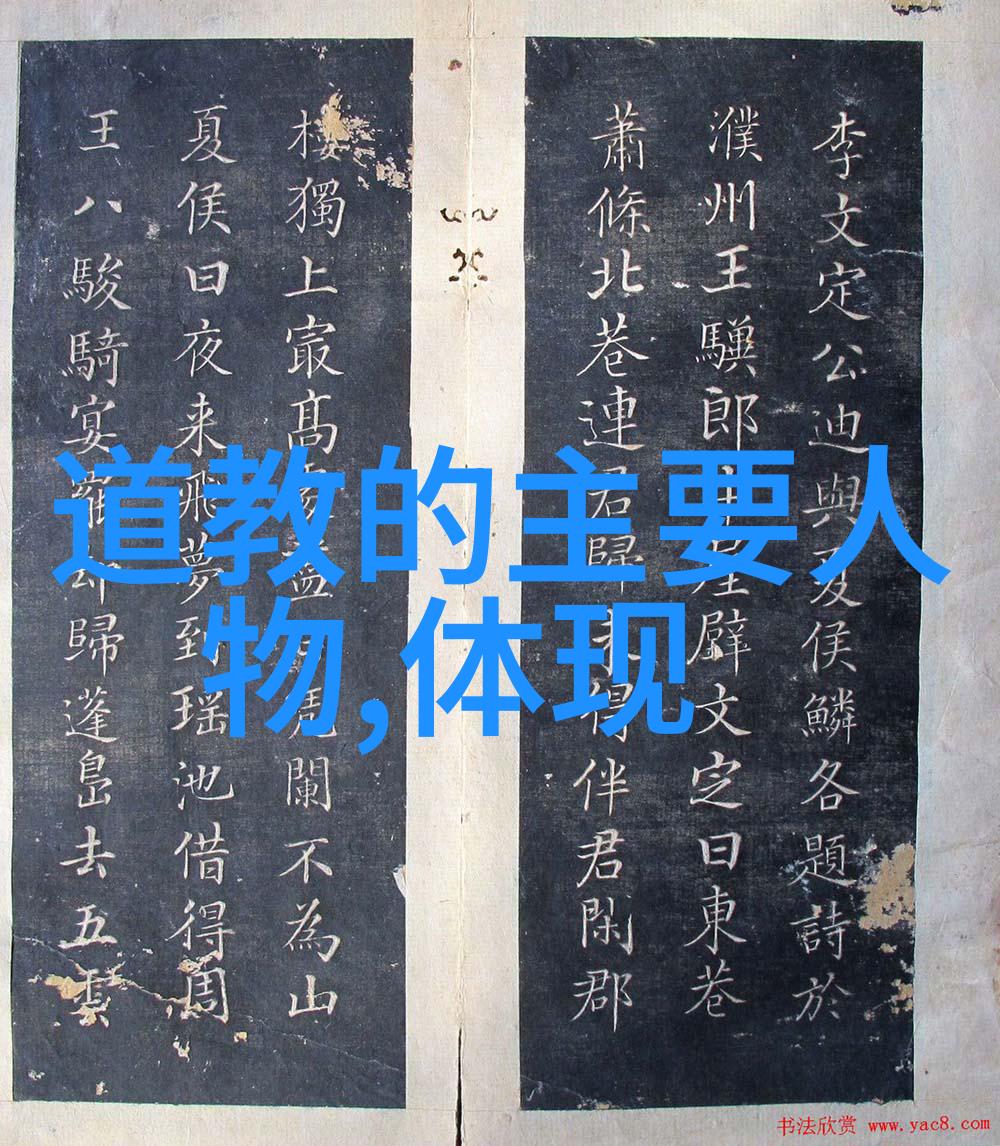 道教的主要人
物,体现
李文定公迪與夏侯鱗各題詩於
濮州王驥郎中屋壁文定曰東巷
蕭條北巷連君歸未得伴君閑郡
樓獨上最高處盡日凭闌不為山
夏侯曰夜来飛夢到瑶池借得周
王八駿騎宴罷却歸蓬島去五雲
书法欣赏 www.yac8.com